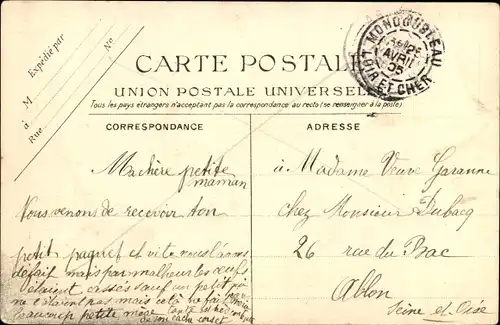 Expédié par
M
à
Rue
No
MONDOUBLEAU
25
AVRIL
05
LOIR ET CHER
CARTE POSTALE
UNION POSTALE UNIVERSELLE
Tous les pays étrangers n'acceptant pas la correspondance au recto (se renseigner à la poste)
CORRESPONDANCE
ADRESSE
Ma chère petite
maman
Nous venons de recevoir ton
petit paquet et vite nous l'avons
défait mais par malheur les œufs
étaient cassés sauf un petit
ne étaient pas mais cela ne fait
beaucoup petite mère tante est
à Madame Veuve Garanne
chez Monsieur Dubacq
26 rue du Bac
Ablon
Seine et Oise